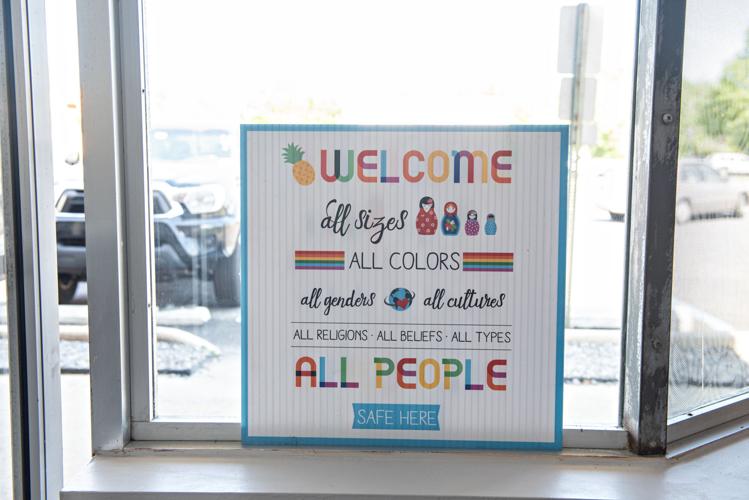 WELCOME
all sizes
ALL COLORS
all genders all cultures
ALL RELIGIONS · ALL BELIEFS · ALL TYPES
ALL PEOPLE
SAFE HERE